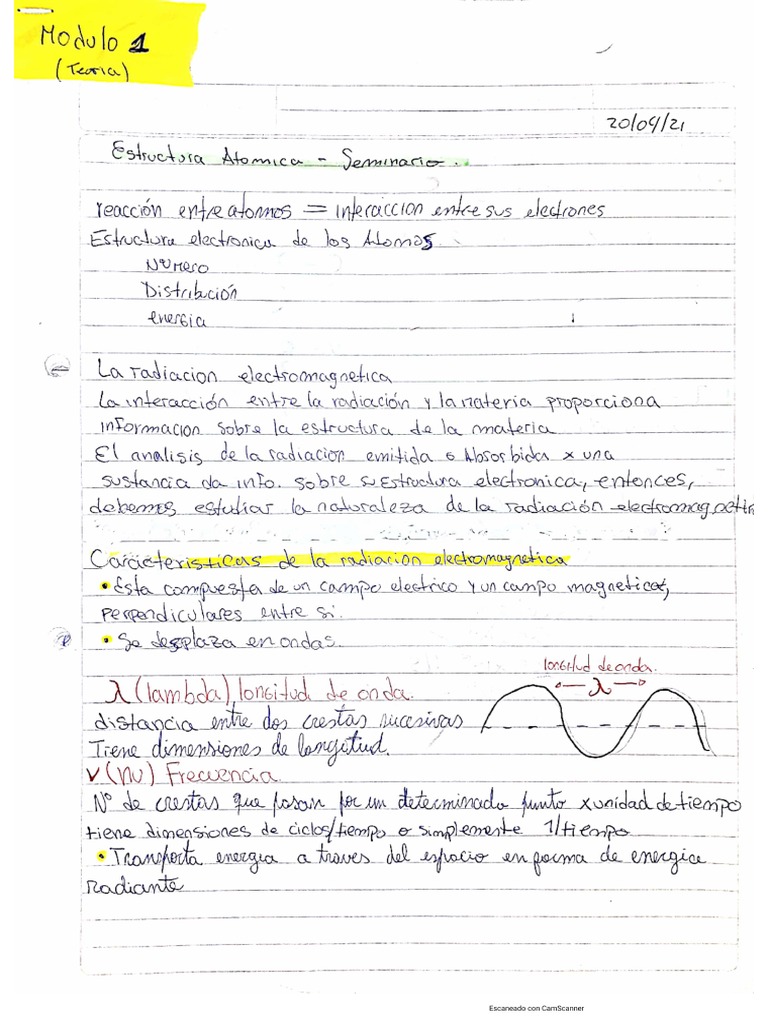 Modulo 1
(Teoria)
20/04/21
Estructura Atomica - Seminario.
reacción entre atomos = interaccion entre sus electrones
Estructura electronica de los Atomos
Número
Distribución
energia
La radiacion electromagnetica
La interacción entre la radiación y la materia proporciona
informacion sobre la estructura de la materia
El analisis de la radiacion emitida o Absorbida x una
sustancia da info. sobre su Estructura electronica, entonces,
debemos estudiar la naturaleza de la radiación electromagnetic
Caracteristicas de la radiacion electromagnetica
• Esta compuesta de un campo electrico y un campo magnetico,
perpendiculares entre si.
• Se desplaza en ondas.
longitud de onda.
λ
λ (lambda) longitud de onda.
distancia entre dos crestas sucesivas
Tiene dimensiones de longitud.
ν (nu) Frecuencia.
Nº de crestas que pasan por un determinado punto x unidad de tiempo
tiene dimensiones de ciclos/tiempo o simplemente 1/tiempo
• Transporta energia a traves del espacio en forma de energica
radiante
Escaneado con CamScanner